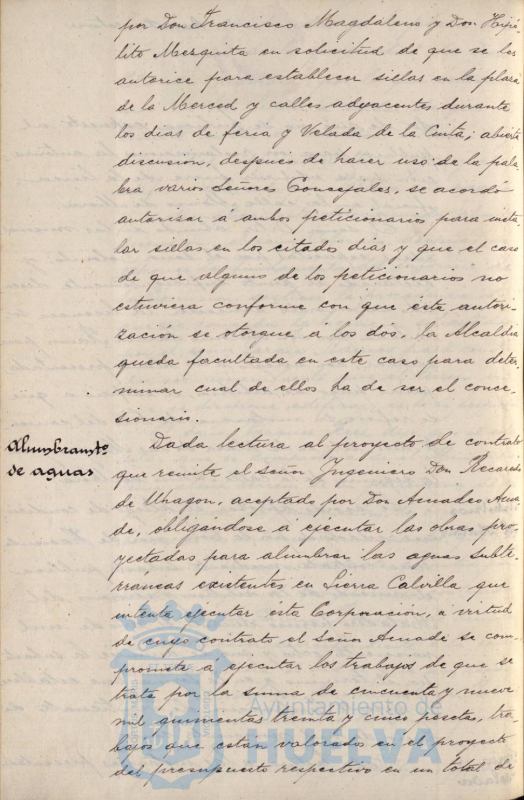 por Don Francisco Magdaleno y Don Hipó-
lito Mezquita en solicitud de que se les
autorice para establecer sillas en la plaza
de la Merced y calles adyacentes durante
los dias de feria y Velada de la Cinta; abierta
discusion, después de hacer uso de la pala-
bra varios Señores Concejales, se acordó
autorizar á ambos peticionarios para insta-
lar sillas en los citados dias y que el caso
de que alguno de los peticionarios no
estuviera conforme con que ésta autori-
zación se otorgue á los dos, la Alcaldia
queda facultada en este caso para deter-
minar cual de ellos ha de ser el conce-
sionario.
Alumbramto
de aguas
Dada lectura al proyecto de contrato
que remite el Señor Ingeniero Don Recaredo
de Uhagon, aceptado por Don Amadeo
obligándose á ejecutar las obras pro-
yectadas para alumbrar las aguas subte-
rráneas existentes en Sierra Calvilla que
intenta ejecutar ésta Corporación, á virtud
de cuyo contrato el Señor se com-
promete á ejecutar los trabajos de que se
trata por la suma de cincuenta y nueve
mil quinientas treinta y cinco pesetas, tra-
bajos que estan valorados en el proyecto
del presupuesto respectivo en un total de
Ayuntamiento de
HUELVA